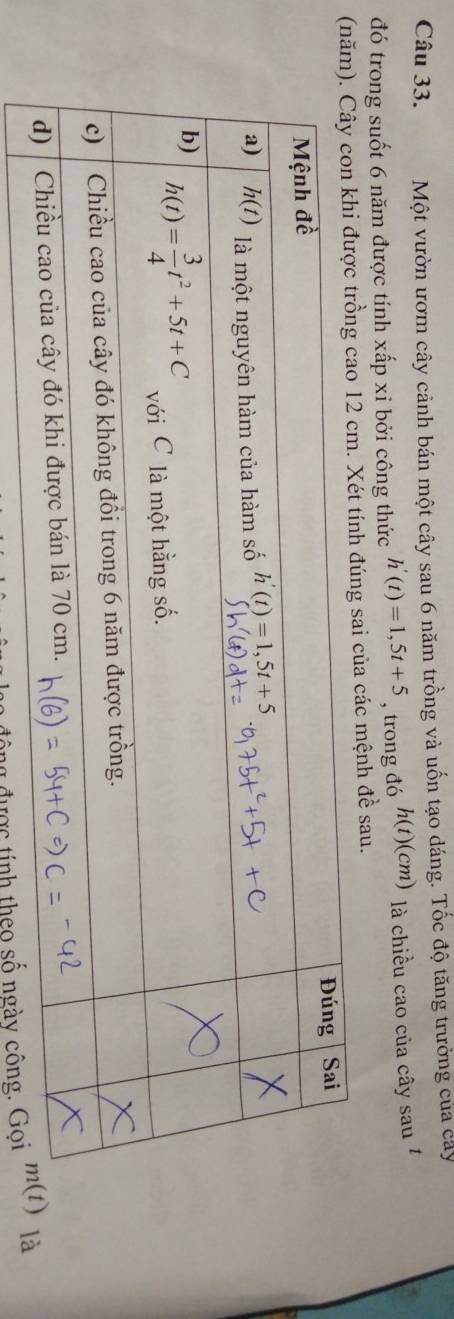 Câu 33. Một vườn ươm cây cảnh bán một cây sau 6 năm trồng và uốn tạo dáng. Tốc độ tăng trưởng của cây
đó trong suốt 6 năm được tính xấp xỉ bởi công thức h'(t) = 1,5t + 5, trong đó h(t)(cm) là chiều cao của cây sau t
(năm). Cây con khi được trồng cao 12 cm. Xét tính đúng sai của các mệnh đề sau.
Mệnh đề Đúng Sai
a) h(t) là một nguyên hàm của hàm số h'(t) = 1,5t + 5 X
∫h'(t)dt = 0,75t² + 5t + C
b) h(t) = 3/4 t² + 5t + C với C là một hằng số. X
c) Chiều cao của cây đó không đổi trong 6 năm được trồng. X
d) Chiều cao của cây đó khi được bán là 70 cm. h(6) = 54 + C => C = -42 X
động được tính theo số ngày công. Gọi m(t) là